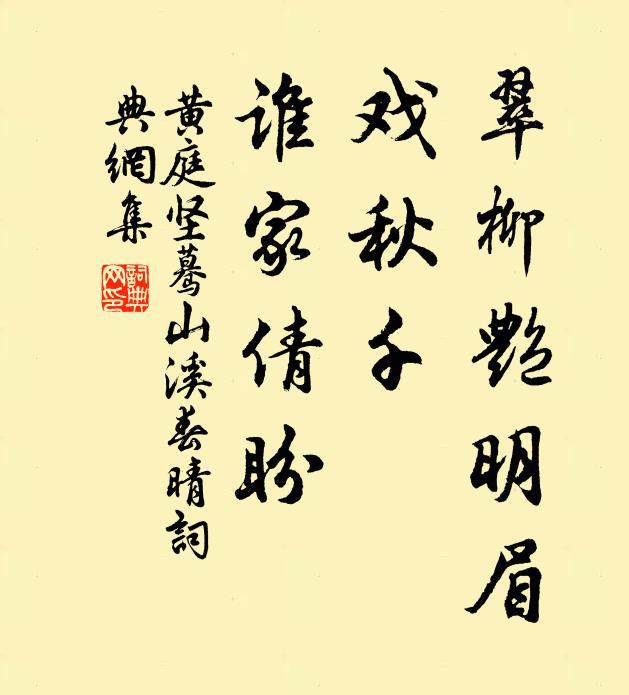 翠柳艷明眉
戏秋千
谁家倩盼
黄庭坚蓦山溪春晴詞
典網集
詞典
网印